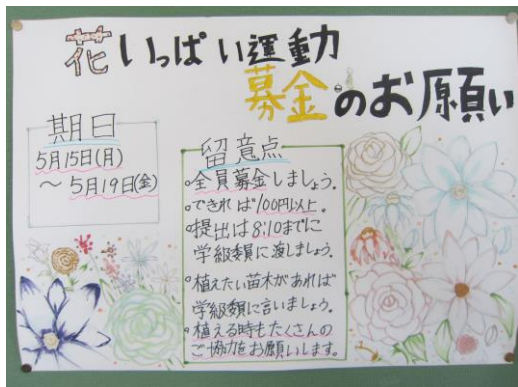 花いっぱい運動
募金のお願い
期日
5月15日(月)
～5月19日(金)
留意点
○全員募金しましょう。
○できれば100円以上。
○提出は8:10までに
学級委員に渡しましょう。
○植えたい苗木があれば
学級委員に言いましょう。
○植える時もたくさんの
ご協力をお願いします。